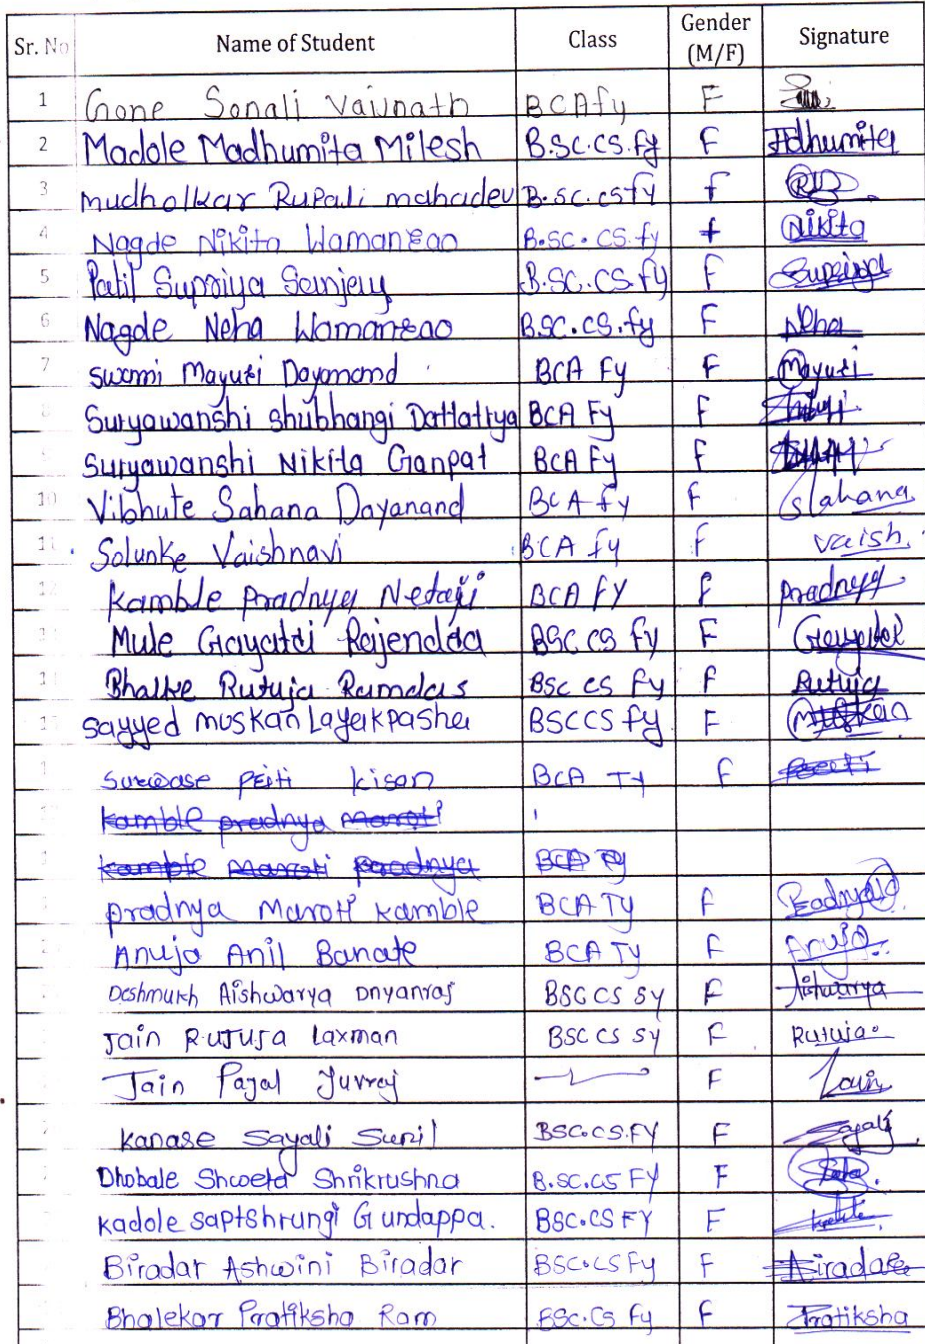 Sr. No Name of Student Class Gender (M/F) Signature
1 Gone Sonali Vaijnath BCA fy F
2 Madole Madhumita Milesh B.SC.CS.fy F Madhumita
3 mudholkar Rupali mahadev B.SC.CS fy F
4 Nagde Nikita Wamanrao B.SC.CS.fy F Nikita
5 Patil Supriya Sanjay B.SC.CS.fy F Supriya
6 Nagde Neha Wamanrao B.SC.CS.fy F Neha
7 Swami Mayuri Dayanand BCA Fy F Mayuri
8 Suryawanshi Shubhangi Dattatrya BCA Fy F
9 Suryawanshi Nikita Ganpat BCA Fy F
10 Vibhute Sahana Dayanand BCA fy F Sahana
11 Solunke Vaishnavi BCA fy F Vaish.
12 Kamble Pradnya Netaji BCA FY F Pradnya
Mule Gayatri Rajendra BSC CS Fy F Gayatri
Bhalke Rutuja Ramdas BSc CS Fy F Rutuja
sayyed muskan Layakpasha BSCCS fy F Muskan
Surwase Priti kison BCA TY F Preeti
kamble pradnya Maroti
kamble Maroti Pradnya BCA Ty
pradnya Maroti kamble BCA Ty F Pradnya
Anuja Anil Banate BCA Ty F Anuja
Deshmukh Aishwarya Dnyanraj BSC CS SY F Aishwarya
Jain RUTUJA Laxman BSC CS SY F Rutuja
Jain Payal Yuvraj F Jain
kanase Sayali Sunil BSC.CS.FY F Sayali
Dhobale Shweta Shrikrushna B.SC.CS FY F
kadole saptshrungi Gundappa. BSC.CS FY F
Biradar Ashwini Biradar BSC.CS Fy F Biradar
Bhalekar Pratiksha Ram BSC.CS Fy F Pratiksha